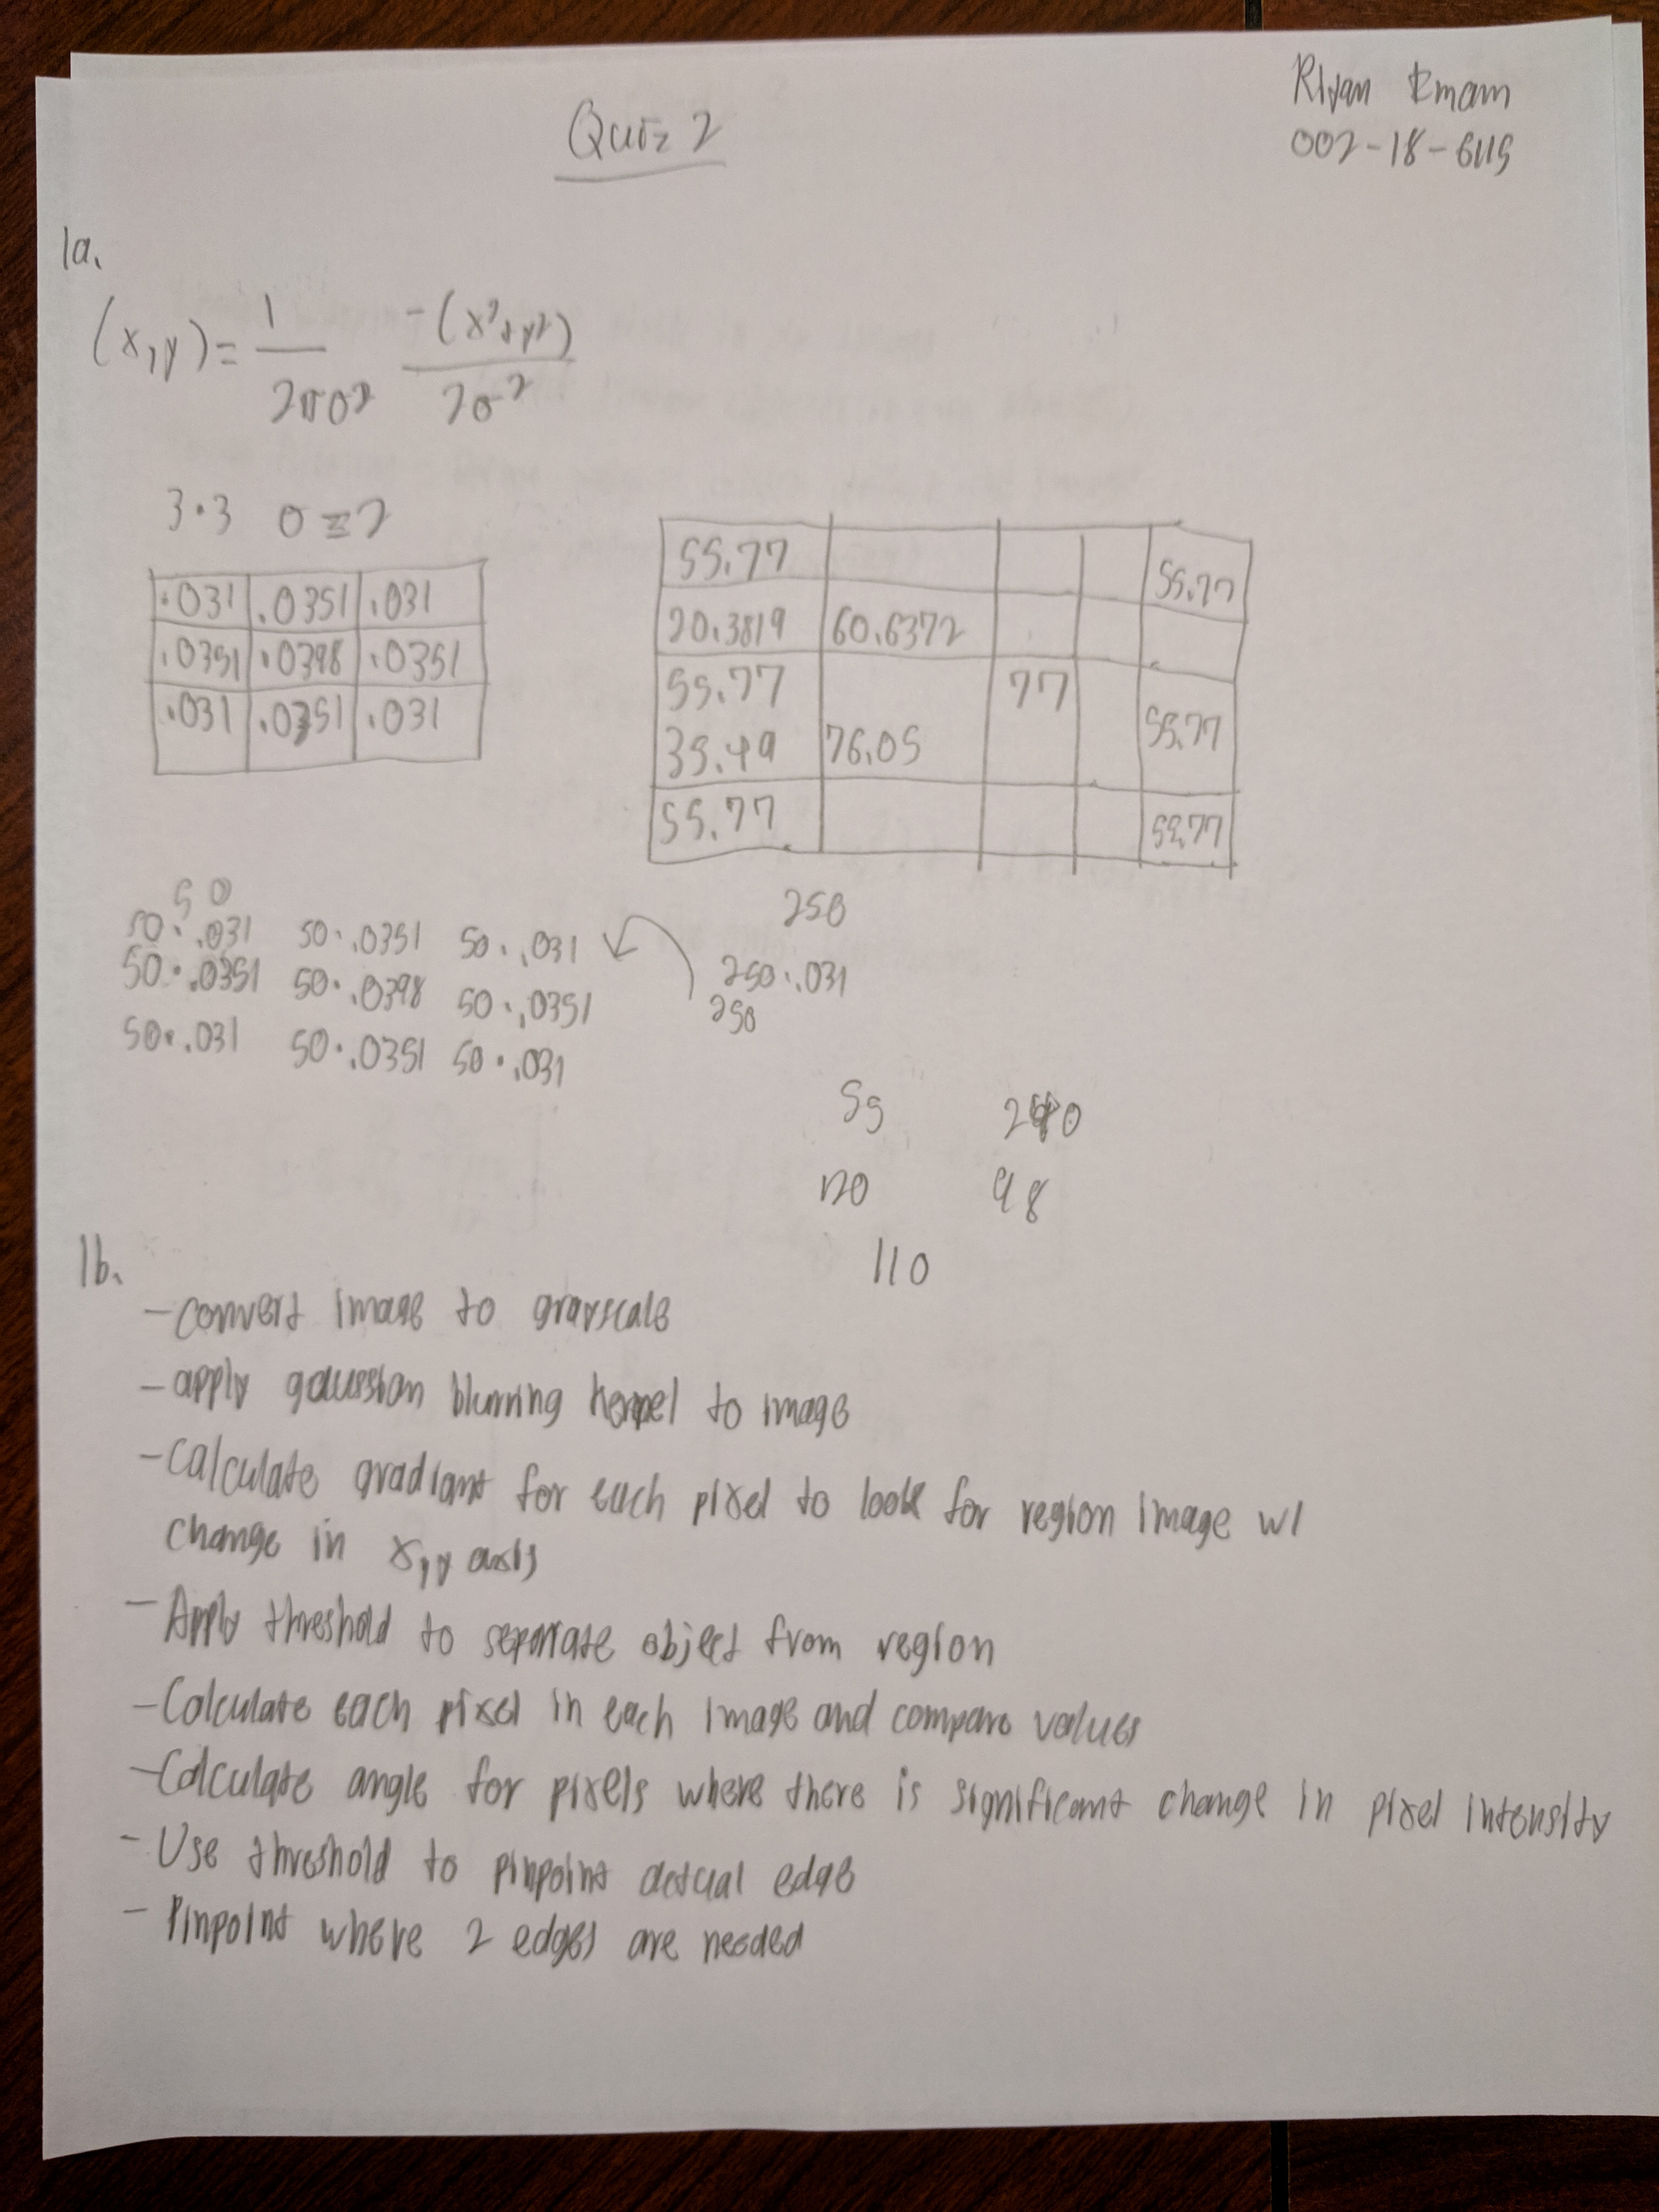 Quiz 2
Riyan Emam
002-18-6115
1a.
(x,y) = 1/2πσ² -(x²+y²)/2σ²
3·3 σ = 2
.031 .0351 .031
.0351 .0398 .0351
.031 .0351 .031
55.77 55.77
20.3819 60.6372
55.77 77 55.77
35.49 76.05
55.77 55.77
50
50·.031 50·.0351 50·.031
50·.0351 50·.0398 50·.0351
50·.031 50·.0351 50·.031
250
250·.031
250
55
120 98
110
1b.
- convert image to grayscale
- apply gaussian blurring kernel to image
- Calculate gradiant for each pixel to look for region image w/
change in x,y axis
- Apply threshold to separate object from region
- Calculate each pixel in each image and compare values
- Calculate angle for pixels where there is significant change in pixel intensity
- Use threshold to pinpoint actual edge
- Pinpoint where 2 edges are needed